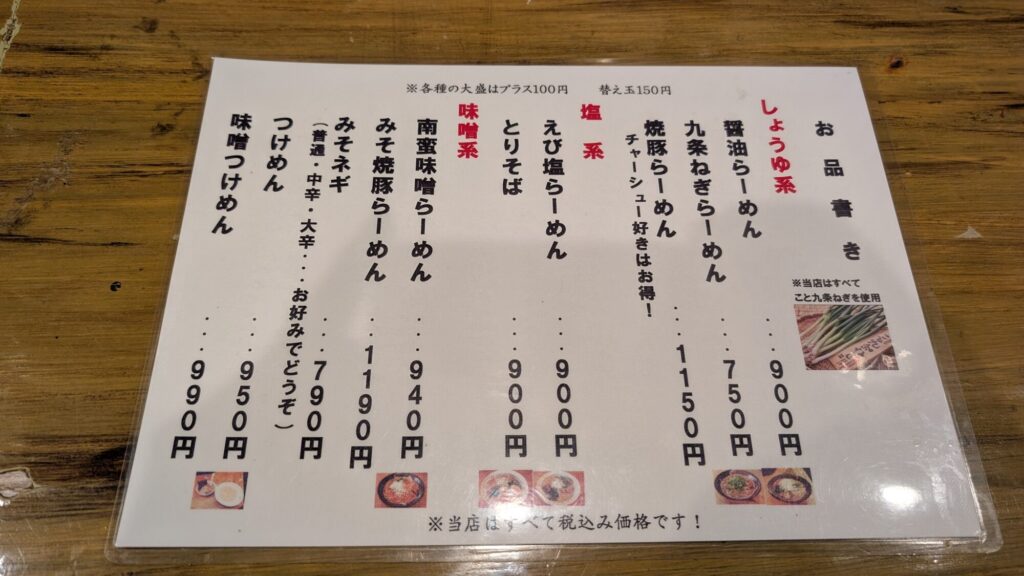 ※各種の大盛はプラス100円　替え玉150円
お品書き
※当店はすべて
こと九条ねぎを使用
しょうゆ系
醤油らーめん ・・・900円
九条ねぎらーめん ・・・750円
焼豚らーめん ・・・1150円
チャーシュー好きはお得！
塩系
えび塩らーめん ・・・900円
とりそば ・・・900円
味噌系
南蛮味噌らーめん ・・・940円
みそ焼豚らーめん ・・・1190円
みそネギ ・・・790円
（普通・中辛・大辛・・・お好みでどうぞ）
つけめん ・・・950円
味噌つけめん ・・・990円
※当店はすべて税込み価格です！